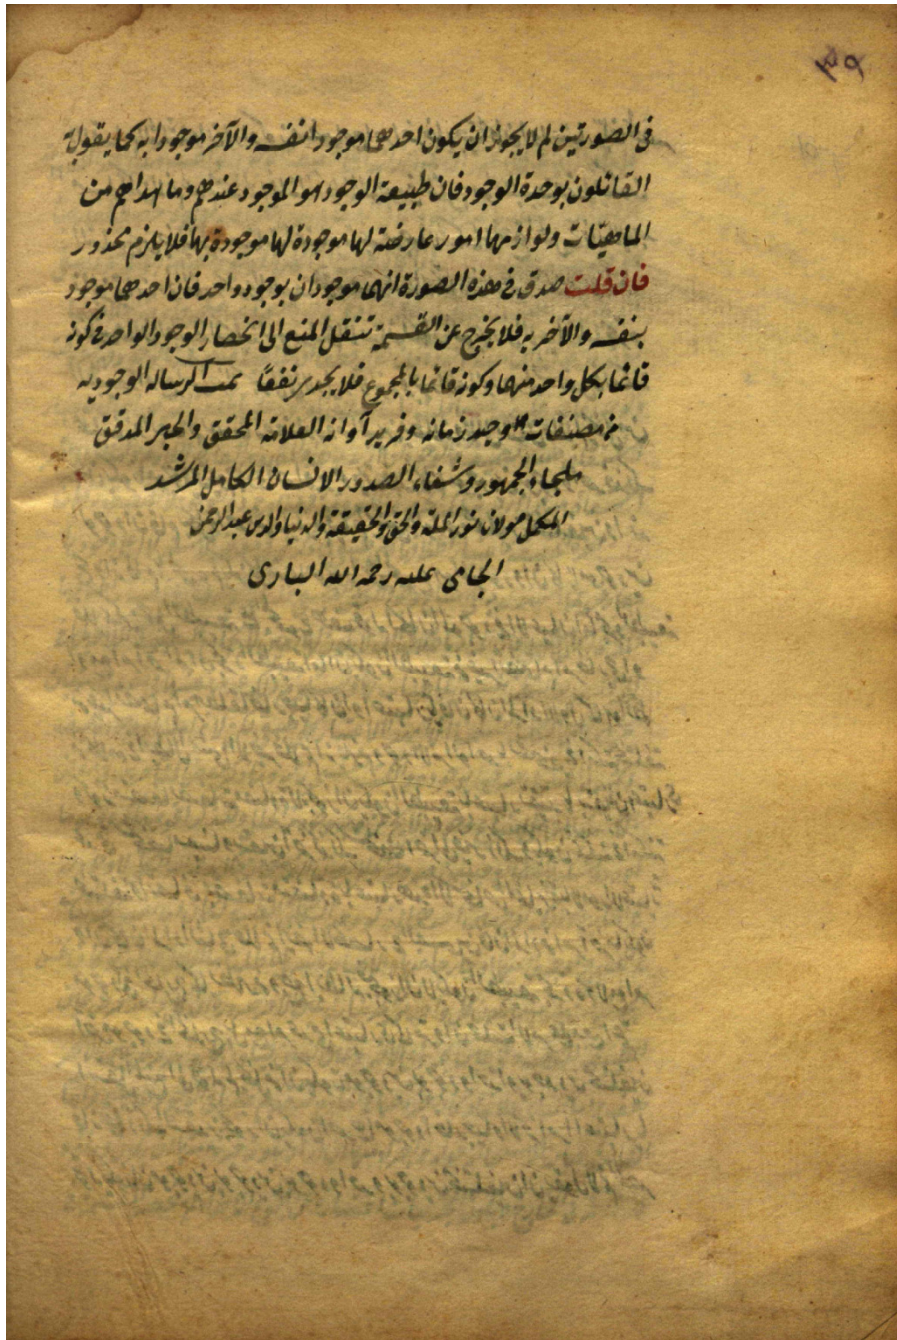 ٣٩
في الصورتين لم لا يجوز ان يكون احدهما موجودا بنفسه والآخر موجودا به كما يقول به
القائلون بوحدة الوجود فان طبيعة الوجود هو الموجود عندهم وما عداهم من
الماهيّات ولوازمها امور عارضة لها موجودة لها موجودة بها فلا يلزم محذور
فان قلت صدق في هذه الصورة انهما موجودان بوجود واحد فان احدهما موجود
بنفسه والآخر به فلا يخرج عن القسمة تنتقل المنع الى انحصار الوجود الواحد في كونه
قائما بكل واحد منهما وكونه قائما بالمجموع فلا يجديه نفعًا تمت الرساله الوجوديه
من مصنفات وحيد زمانه وفريد آوانه العلامه المحقق والحبر المدقق
ملجاء الجمهور وشفاء الصدور الانسان الكامل المرشد
المكمل مولانا نور الملة والحق والحقيقة والدنيا والدين عبد الرحمن
الجامى عليه رحمه الله البارى